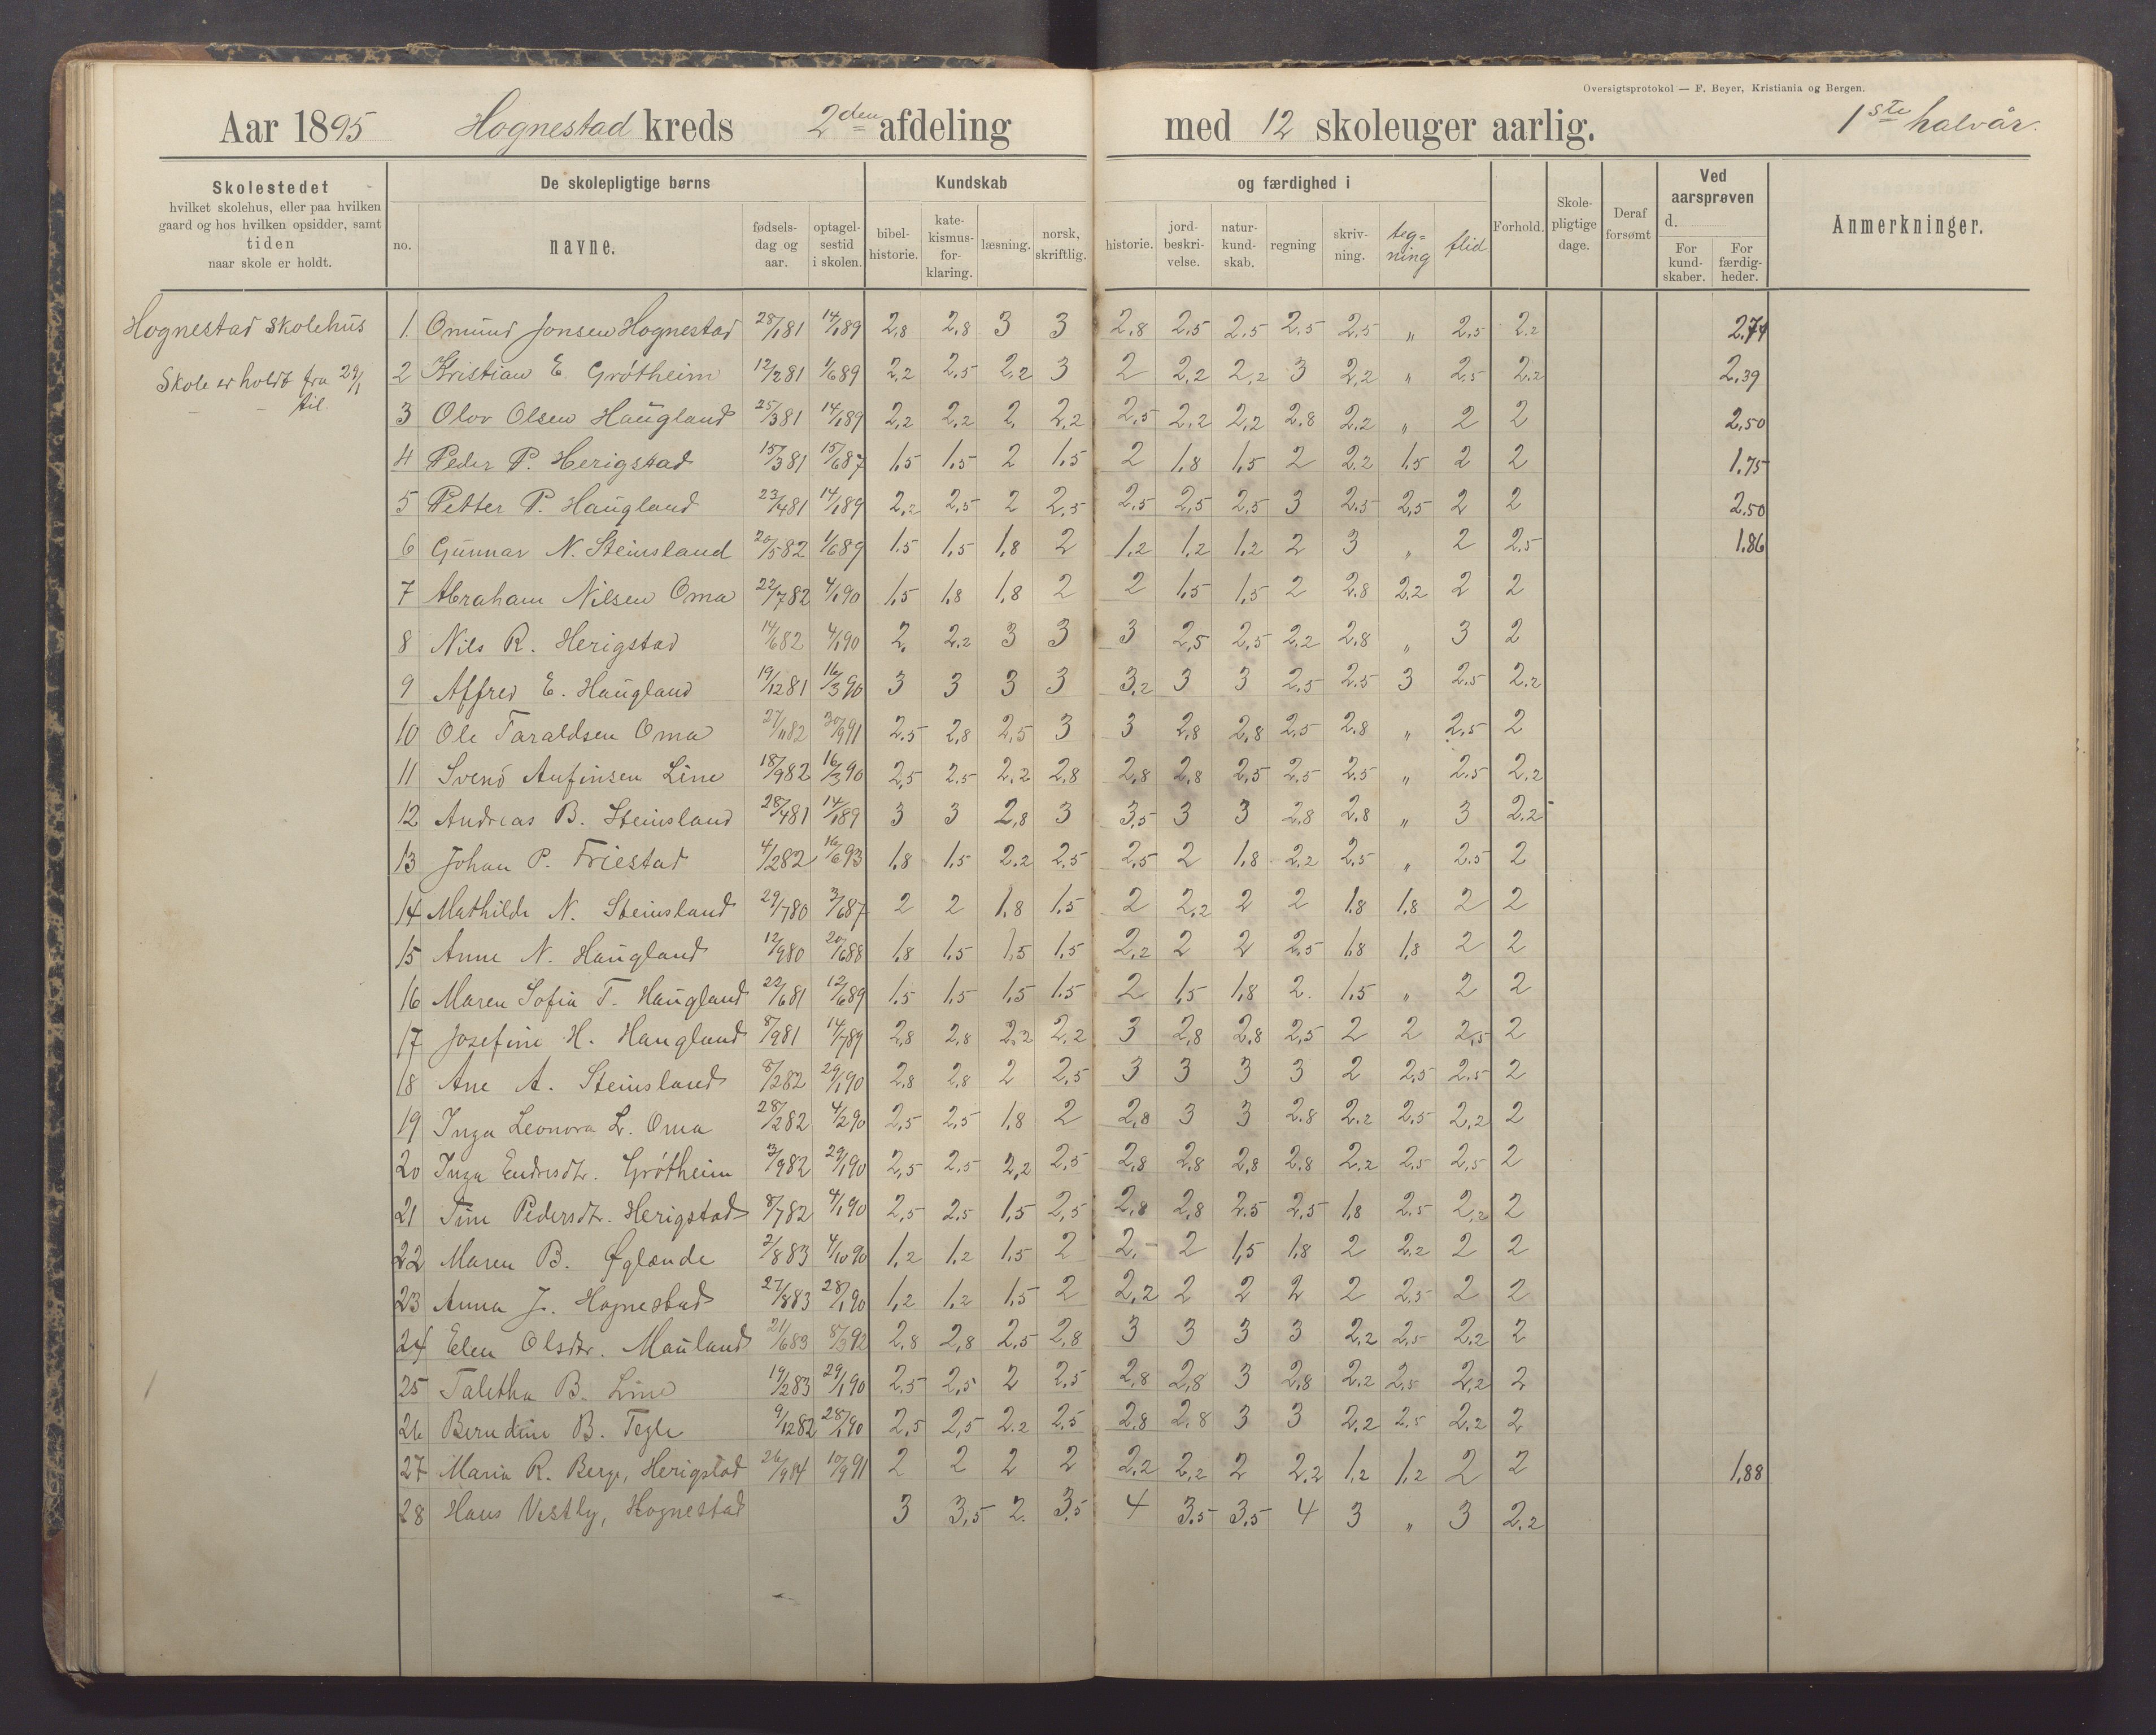 Oversigtsprotokol — F. Beyer, Kristiania og Bergen.
Aar 1895 Hognestad kreds 2den afdeling med 12 skoleuger aarlig. 1ste halvår.
Skolestedet
hvilket skolehus, eller paa hvilken
gaard og hos hvilken opsidder, samt
tiden
naar skole er holdt.
De skolepligtige børns
no.
navne.
fødsels-
dag og
aar.
optagel-
sestid
i skolen.
Kundskab og færdighed i
bibel-
historie.
kate-
kismus-
for-
klaring.
læsning.
norsk,
skriftlig.
historie.
jord-
beskri-
velse.
natur-
kund-
skab.
regning
skriv-
ning.
teg-
ning
flid
Forhold.
Skole-
pligtige
dage.
Deraf
forsømt
d.
Ved
aarsprøven
For
kund-
skaber.
For
færdig-
heder.
Anmerkninger.
Hognestad skolehus
Skole er holdt fra 29/1
— — til.
1. Omund Jonsen Hognestad 28/1 81 14/1 89 2,8 2,8 3 3 2,8 2,5 2,5 2,5 2,5 „ 2,5 2,2 2,74
2 Kristian E. Grótheim 12/2 81 1/6 89 2,2 2,5 2,2 3 2 2,2 2,2 3 2,2 „ 2,5 2,2 2,39
3 Olov Olsen Haugland 25/3 81 14/1 89 2,2 2,2 2, 2,2 2,5 2,2 2,2 2,8 2,2 „ 2 2 2,50
4 Peder P. Herigstad 15/3 81 15/6 87 1,5 1,5 2 1,5 2 1,8 1,5 2 2,2 1,5 2 2 1,75
5 Petter P. Haugland 23/4 81 14/1 89 2,2 2,5 2 2,5 2,5 2,5 2,5 3 2,5 2,5 2 2 2,50
6 Gunnar N. Steinsland 20/5 82 1/6 89 1,5 1,5 1,8 2 1,2 1,2 1,2 2 3 „ 2 2,5 1,86
7 Abraham Nilsen Oma 22/7 82 4/1 90 1,5 1,8 1,8 2 2 1,5 1,5 2 2,8 2,2 2 2
8 Nils R. Herigstad 14/6 82 4/1 90 2, 2,2 3 3 3 2,5 2,5 2,2 2,8 „ 3 2
9 Alfred E. Haugland 19/12 81 16/3 90 3 3 3 3 3,2 3 3 2,5 2,5 3 2,5 2,2
10 Ole Taraldsen Oma 27/11 82 30/9 91 2,5 2,8 2,5 3 3 2,8 2,8 2,5 2,8 „ 2,5 2
11 Svend Anfinsen Line 18/9 82 16/3 90 2,5 2,5 2,2 2,8 2,8 2,8 2,5 2,5 2,5 „ 2,5 2,2
12 Andreas B. Steinsland 28/4 81 14/1 89 3 3 2,8 3 3,5 3 3 2,8 2,8 „ 3 2,2
13 Johan P. Friestad 4/2 82 16/6 93 1,8 1,5 2,2 2,5 2,5 2 1,8 2,2 2,5 „ 2,5 2
14 Mathilde N. Steinsland 29/7 80 3/6 87 2 2 1,8 1,5 2 2,2 2 2 1,8 1,8 2 2
15 Anne N. Haugland 12/9 80 20/6 88 1,8 1,5 1,5 1,5 2,2 2 2 2,5 1,8 1,8 2 2
16 Maren Sofia T. Haugland 22/6 81 12/6 89 1,5 1,5 1,5 1,5 2 1,5 1,8 2. 1,5 „ 2 2
17 Josefine H. Haugland 8/9 81 14/7 89 2,8 2,8 2,2 2,2 3 2,8 2,8 2,5 2 2 2,5 2
18 Ane A. Steinsland 8/2 82 29/1 90 2,8 2,8 2 2,5 3 3 3 3 2 2,5 2,5 2
19 Inga Leonora L. Oma 28/2 82 4/2 90 2,5 2,5 1,8 2 2,8 3 3 2,8 2,2 2,5 2,2 2
20 Inga Endresdtr. Grótheim 3/9 82 29/1 90 2,5 2,5 2,2 2,5 2,8 2,8 2,8 2,8 2,2 2,5 2,5 2
21 Tine Pedersdtr. Herigstad 8/7 82 4/1 90 2,5 2,5 1,5 2,5 2,8 2,8 2,5 2,5 1,8 2,5 2,2 2
22 Maren B. Øglænde 2/8 83 4/10 90 1,2 1,2 1,5 2 2,- 2 1,5 1,8 2 2,2 2 2
23 Anna J. Hognestad 27/8 83 28/1 90 1,2 1,2 1,5 2 2,2 2 2 2 2 2,5 2 2
24 Elen Olsdtr. Mauland 21/6 83 8/3 92 2,8 2,8 2,5 2,8 3 3 3 3 2,2 2,5 2,2 2
25 Talitha B. Line 19/2 83 29/1 90 2,5 2,5 2 2,5 2,8 2,8 3 2,8 2,2 2,5 2,2 2
26 Berndine B. Tegle 9/12 82 28/1 90 2,5 2,5 2,2 2,5 2,8 2,8 3 3 2,2 2,5 2,2 2
27 Maria R. Berge, Herigstad 26/9 84 10/9 91 2 2 2 2 2,2 2,2 2 2,2 1,2 1,2 2 2 1,88
28 Hans Vestly, Hognestad 3 3,5 2. 3,5 4 3,5 3,5 4 3 „ 3 2,2